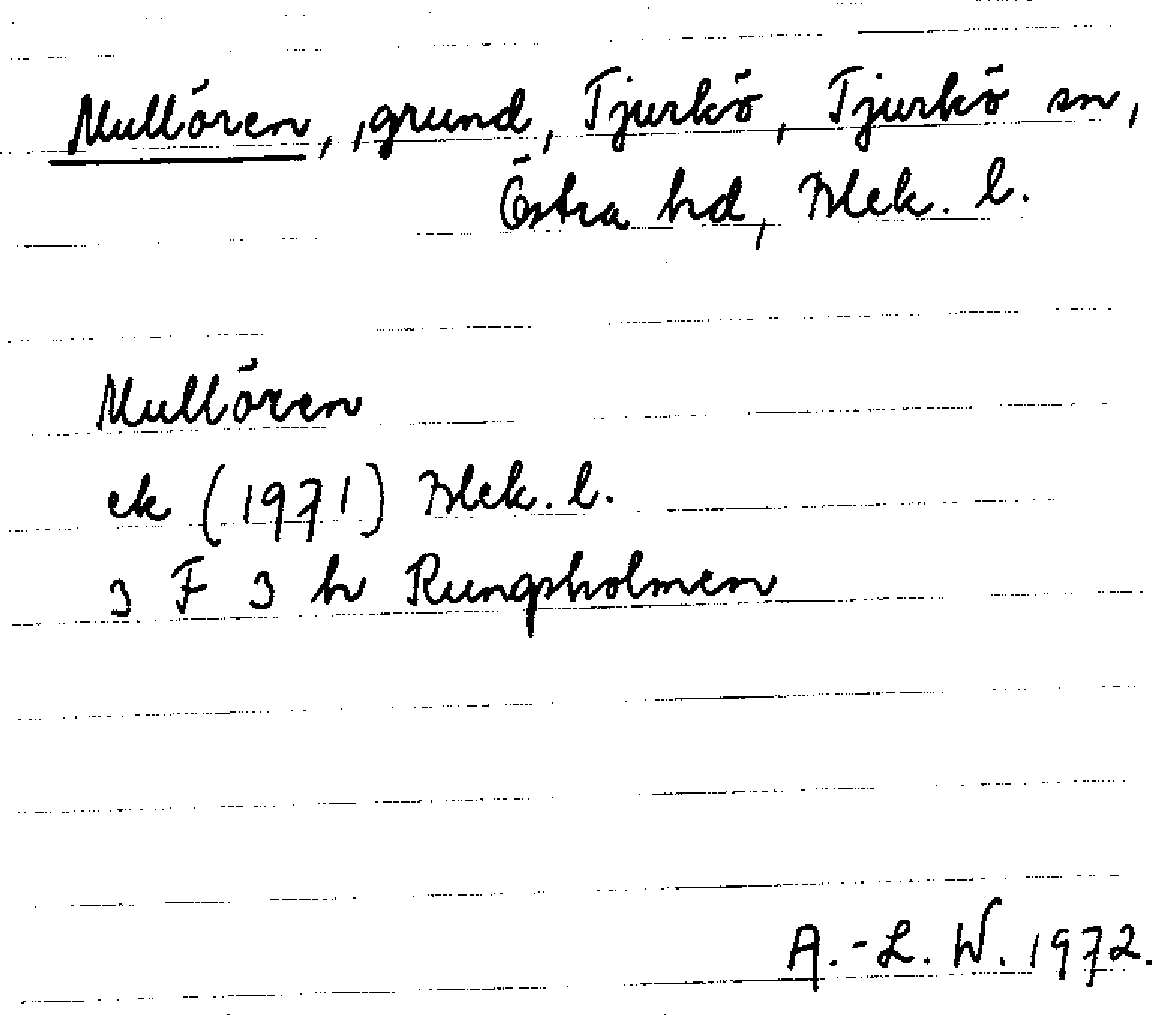 Mullören, grund, Tjurkö, Tjurkö sn,
Östra hd, Blek. l.
Mullören
ek (1971) Blek. l.
3 F 3 h Kungsholmen
A.-L. W. 1972.